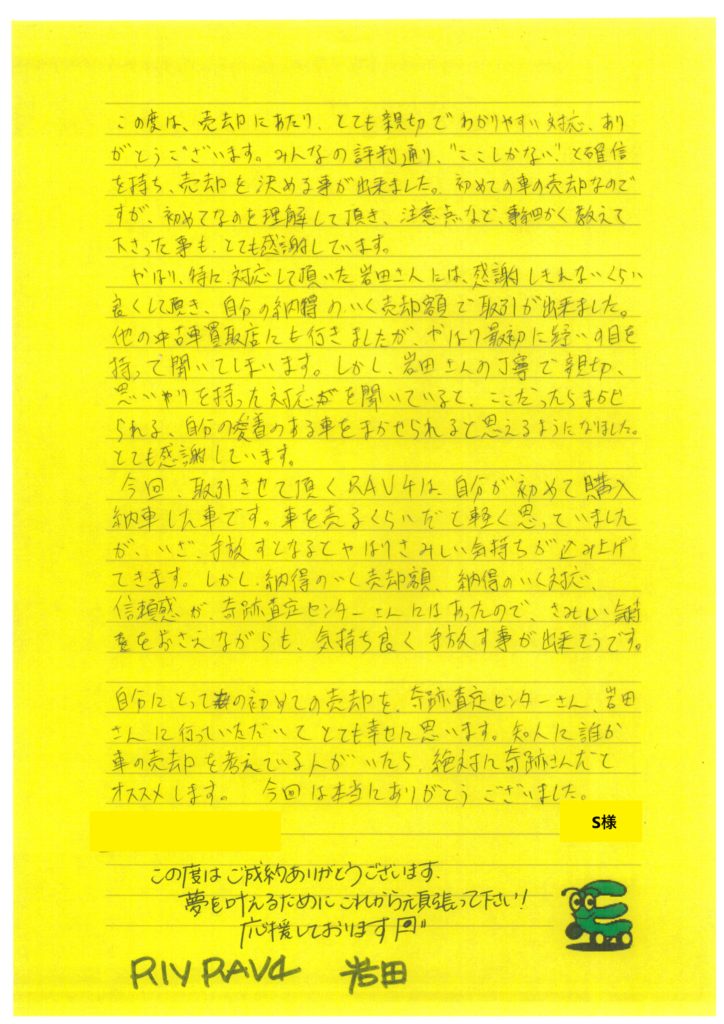 この度は、売却にあたり、とても親切でわかりやすい対応、あり
がとうございます。みんなの評判通り、"ここしかない"と確信
を持ち、売却を決める事が出来ました。初めての車の売却なので
すが、初めてなのを理解して頂き、注意点など、事細かく教えて
下さった事も、とても感謝しています。
やはり、特に、対応して頂いた岩田さんには、感謝しきれないくらい
良くして頂き、自分の納得のいく売却額で取引が出来ました。
他の中古車買取店にも行きましたが、やはり最初に疑いの目を
持って聞いてしまいます。しかし、岩田さんの丁寧で親切、
思いやりを持った対応を聞いていると、ここだったらまかせ
られる、自分の愛着のある車をまかせられると思えるようになりました。
とても感謝しています。
今回、取引させて頂くRAV4は、自分が初めて購入
納車した車です。車を売るくらいだと軽く思っていました
が、いざ、手放すとなるとやはりさみしい気持ちが込み上げ
てきます。しかし、納得のいく売却額、納得のいく対応、
信頼感が、奇跡査定センターさんにはあったので、さみしい気持
をおさえながらも、気持ち良く手放す事が出来そうです。
自分にとっての初めての売却を、奇跡査定センターさん、岩田
さんに行っていただいてとても幸せに思います。知人に誰か
車の売却を考えている人がいたら、絶対に奇跡さんだと
オススメします。 今回は本当にありがとうございました。
S様
この度はご成約ありがとうございます。
夢を叶えるためにこれから頑張って下さい!
応援しております
RIY RAV4 岩田